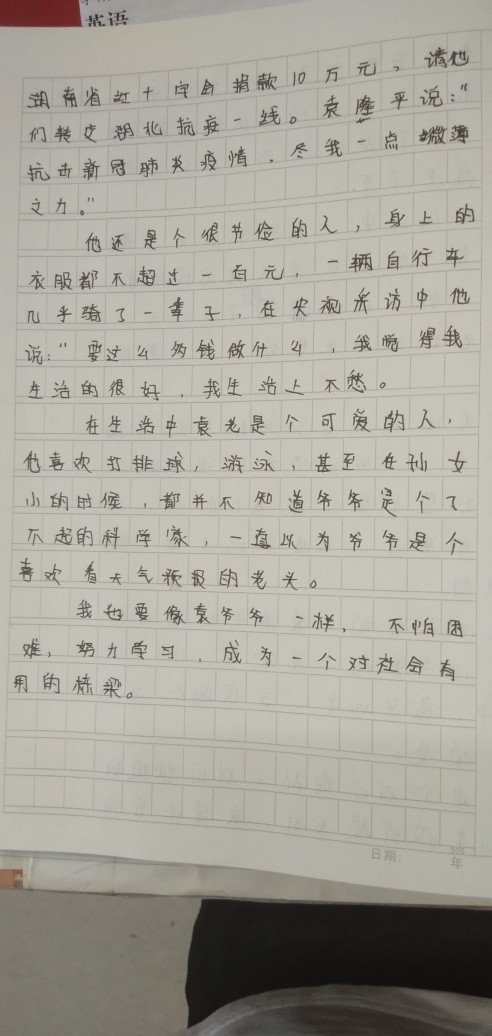 英语
湖南省红十字会捐款10万元，请他
们转交湖北抗疫一线。袁隆平说：“
抗击新冠肺炎疫情，尽我一点微薄
之力。”
他还是个很节俭的人，身上的
衣服都不超过一百元，一辆自行车
几乎骑了一辈子，在央视采访中他
说：“要这么多钱做什么，我觉得我
生活的很好，我生活上不愁。
在生活中袁老是个可爱的人，
他喜欢打排球，游泳，甚至在孙女
小的时候，都并不知道爷爷是个了
不起的科学家，一直以为爷爷是个
喜欢看天气预报的老头。
我也要像袁爷爷一样，不怕困
难，努力学习，成为一个对社会有
用的栋梁。
日期：
年